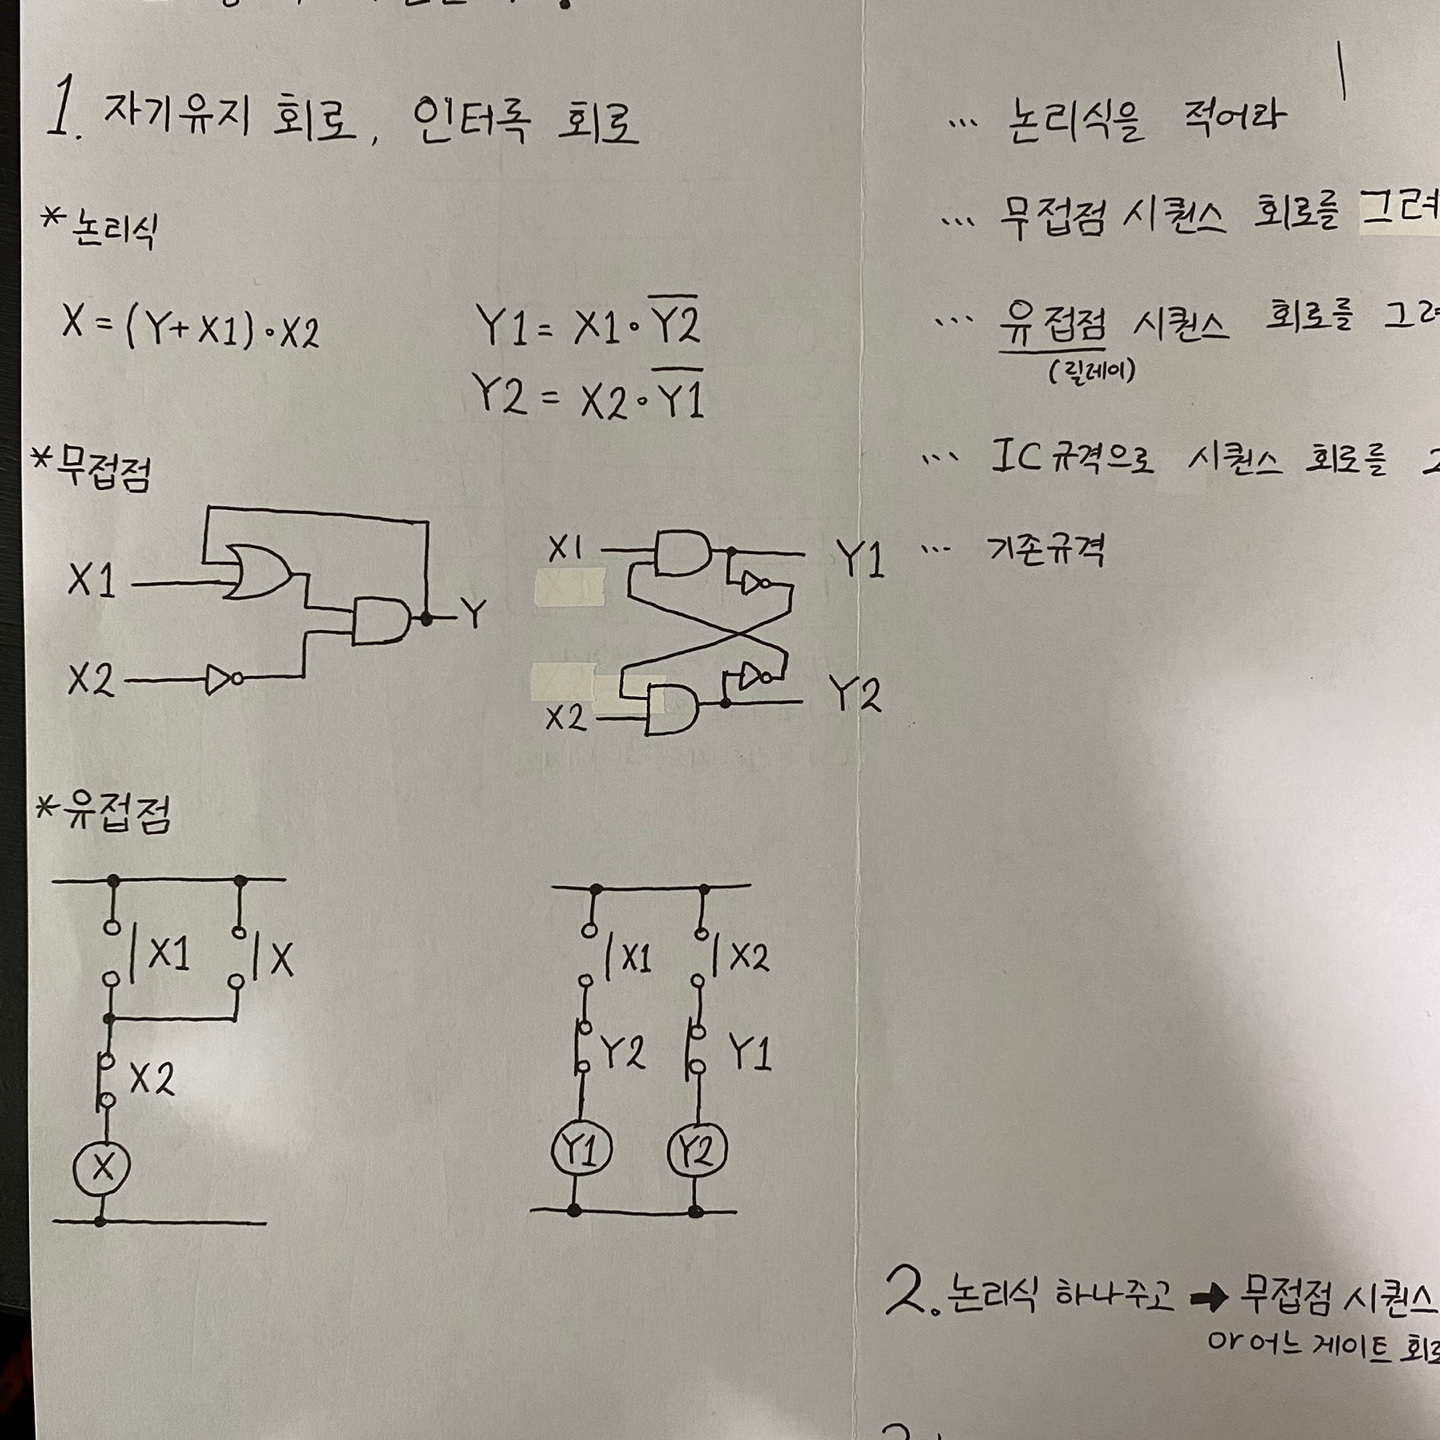 1. 자기유지 회로, 인터록 회로
* 논리식
X = (Y+X1)∘X2
Y1 = X1∘Y̅2̅
Y2 = X2∘Y̅1̅
* 무접점
X1
X2
Y
X1
X2
Y1
Y2
* 유접점
X1
X
X2
X
X1
X2
Y2
Y1
Y1
Y2
... 논리식을 적어라
... 무접점 시퀀스 회로를 그려
... 유접점 시퀀스 회로를 그려
(릴레이)
... IC규격으로 시퀀스 회로를
... 기존규격
2. 논리식 하나주고 → 무접점 시퀀스
or 어느 게이트 회로